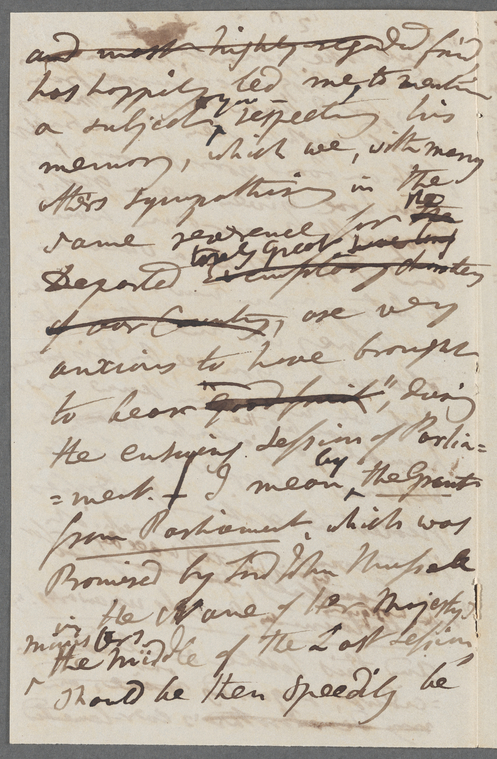 and most highly regarded frie
has happily led me to mention
a subject, to you respecting his
memory, which we, with many
others sympathising in the
same reverence for the the
Departed truly Great
of our Country, are very
anxious to have brought
to bear "good fruit", during
the ensuing Session of Parlia=
=ment. — I mean, by the Grant
from Parliament, which was
Promised by Lord John Russell
in the Name of Her Majesty's
ministers
the middle of the Last Session
should be then speedily be